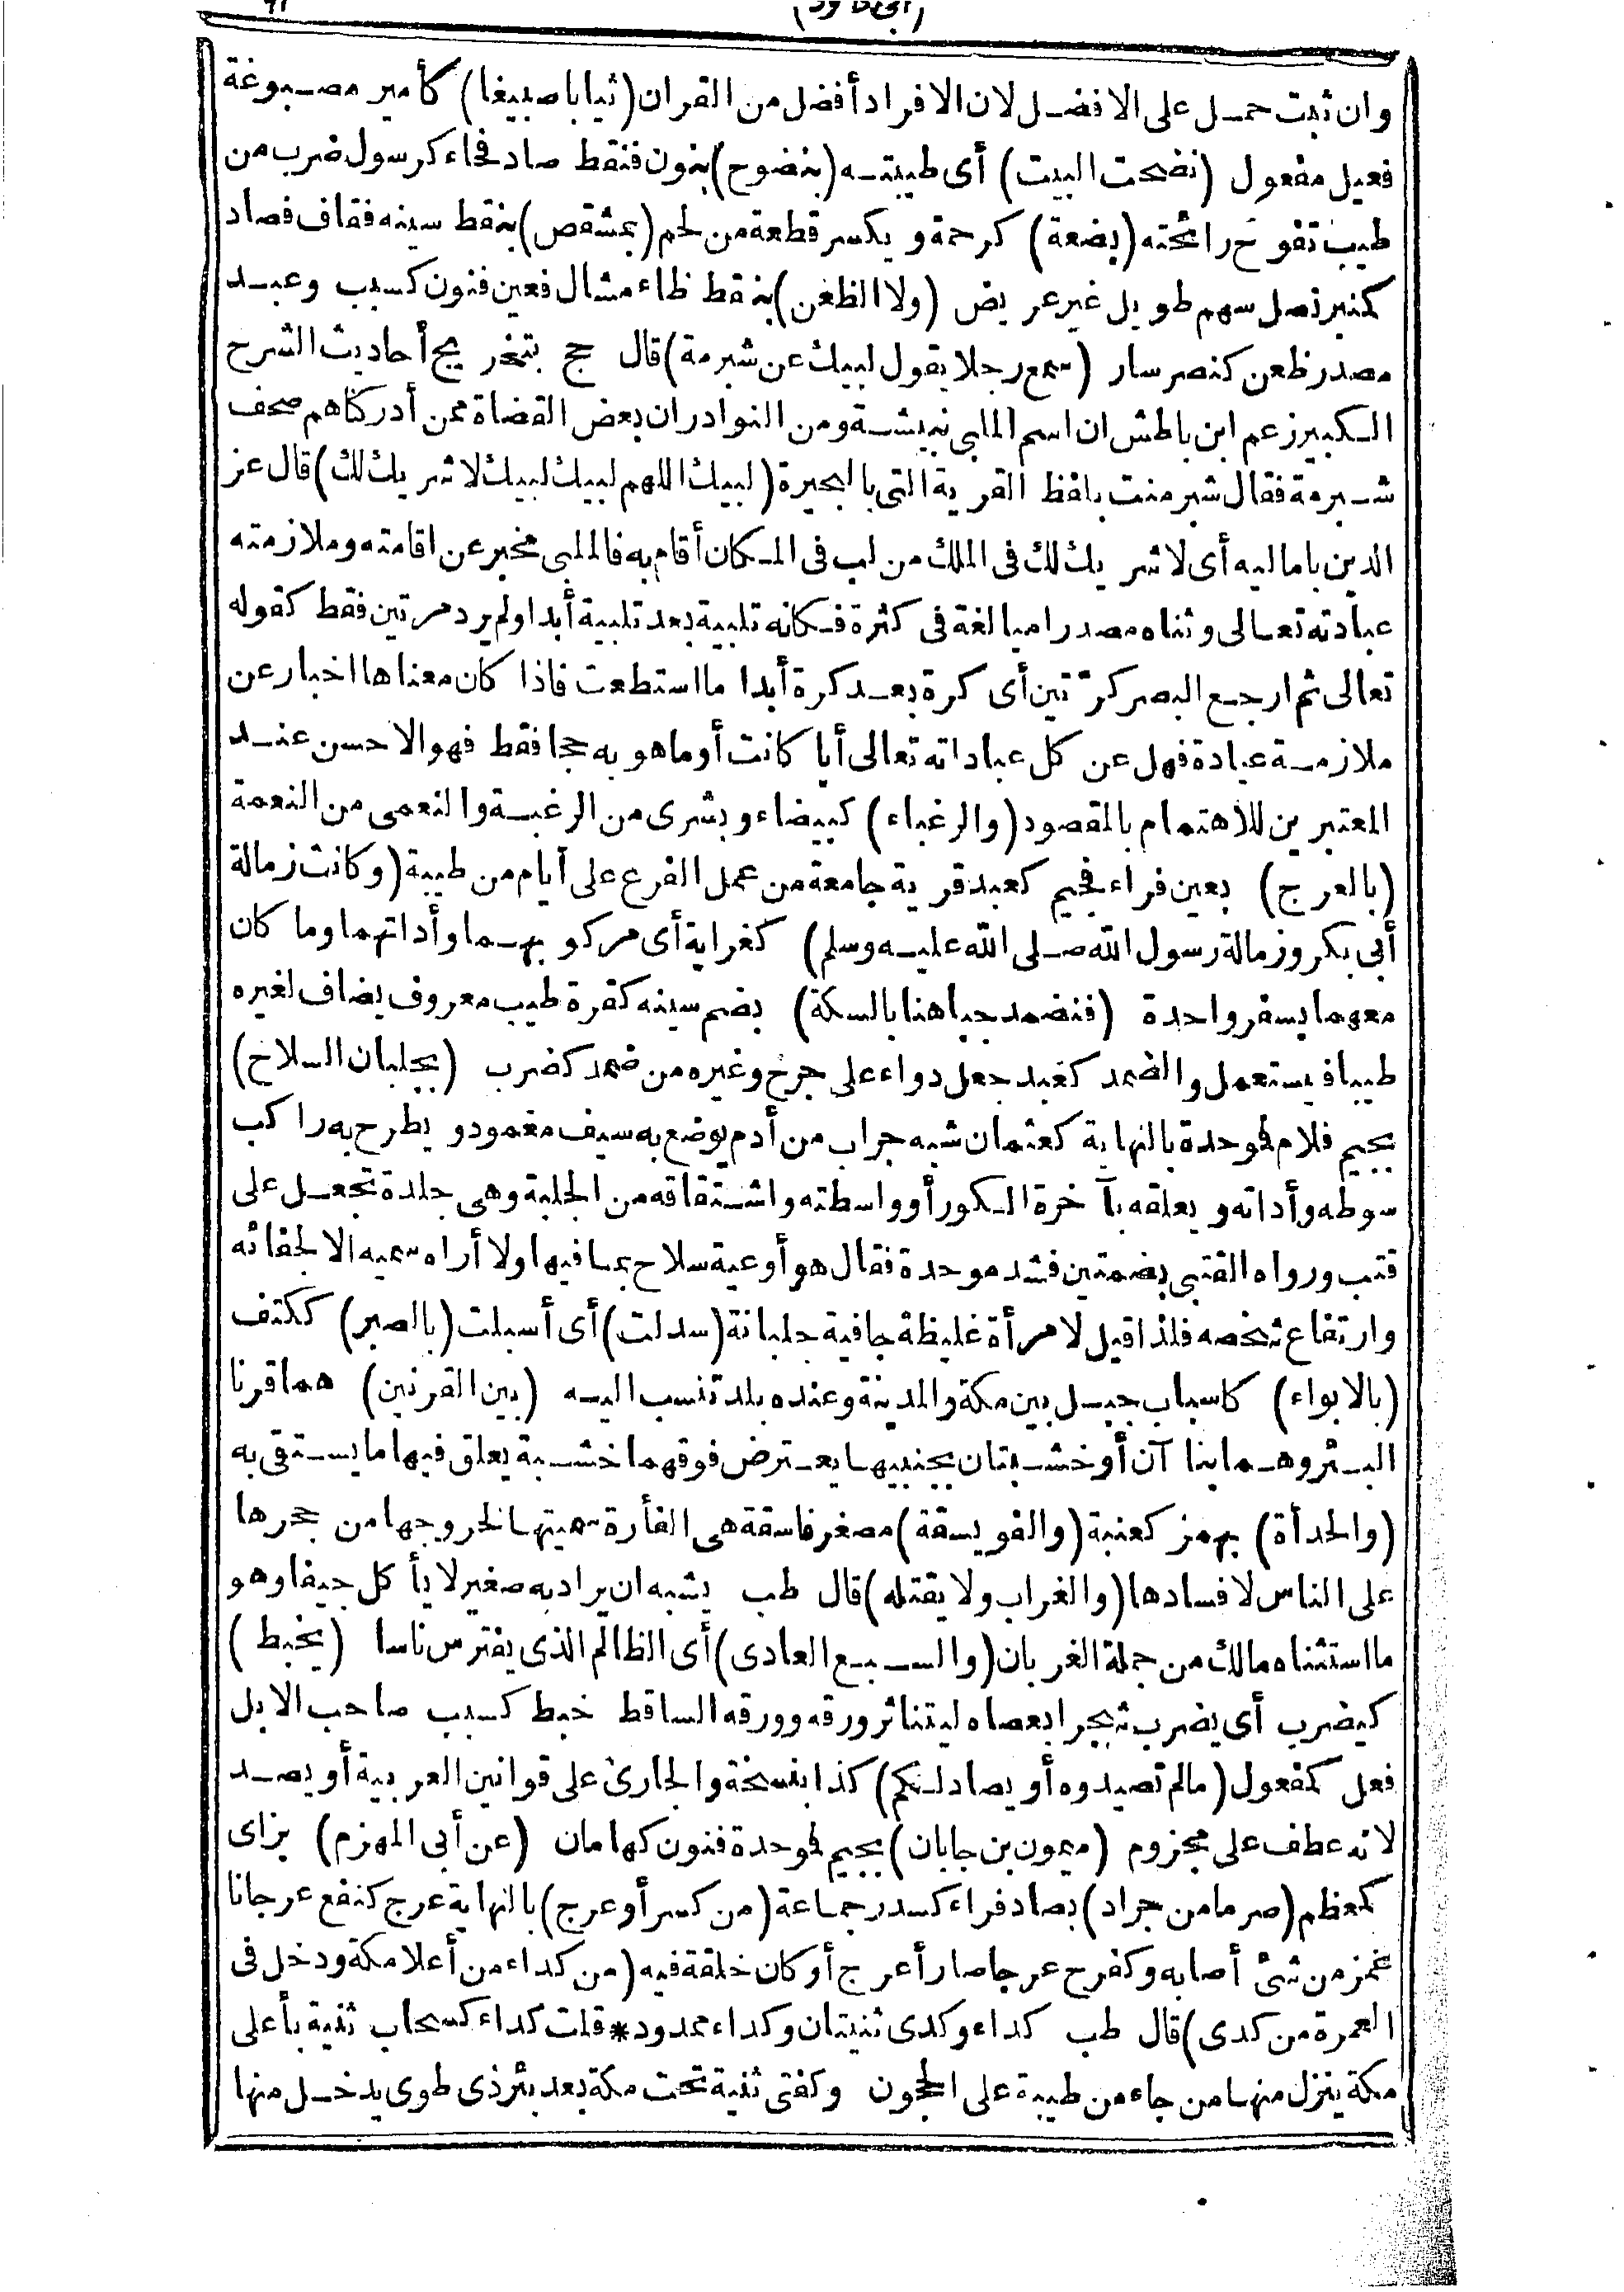 وان ثبت حمل على الافضل لان الافراد أفضل من القران (ثيابا صبيغا) كأمير مصبوغة
فعيل مفعول (نضحت البيت) أى طيبته (بنضوح) بنون فنقط صاد فحاء كرسول ضرب من
طيب تفوح رائحته (بضعة) كرحمة ويكسر قطعة من لحم (بمشقص) بنقط سينه فقاف فصاد
كنبر نصل سهم طويل غير عريض (ولا الظعن) بنقط ظاء مشال فعين فنون كسبب وعبد
مصدر ظعن كنصر سار (سمع رجلا يقول لبيك عن شبرمة) قال حج بتخريج أحاديث الشرح
الكبير زعم ابن باطش ان اسم الملبى نبيشة ومن النوادر ان بعض القضاة ممن أدركناهم صحف
شبرمة فقال شبرمنت بلفظ القرية التى بالجيرة (لبيك اللهم لبيك لبيك لا شريك لك) قال عز
الدين باماليه أى لا شريك لك فى الملك من لب فى المكان أقام به فالملبى مخبر عن اقامته وملازمته
عبادته تعالى وثناه مصدرا مبالغة فى كثرة فكانه تلبية بعد تلبية أبدا ولم يرد مرتين فقط كقوله
تعالى ثم ارجع البصر كرّتين أى كرة بعد كرة أبدا ما استطعت فاذا كان معناها اخبار عن
ملازمة عبادة فهل عن كل عباداته تعالى أيا كانت أو ما هو به حجا فقط فهو الاحسن عند
المعتبرين للاهتمام بالمقصود (والرغباء) كبيضاء وبشرى من الرغبة والنعمى من النعمة
(بالعرج) بعين فراء فجيم كعبد قرية جامعة من عمل الفرع على أيام من طيبة (وكانت زمالة
أبى بكر وزمالة رسول الله صلى الله عليه وسلم) كغراية أى مركوبهما وأداتهما وما كان
معهما بسفر واحدة (فنضمد جباهنا بالسكة) بضم سينه كقرة طيب معروف يضاف لغيره
طيبا فيستعمل والضمد كغبد جعل دواء على جرح وغيره من ضمد كضرب (بجلبان السلاح)
بجيم فلام فوحدة بالنهاية كعثمان شبه جراب من أدم يوضع به سيف مغمود ويطرح به راكب
سوطه وأداته ويعلقه بآخرة الكور أو واسطته واشتقاقه من الجلبة وهى جلدة تجعل على
قتب ورواه القتبى بضمتين فشد موحدة فقال هو أوعية سلاح بما فيها ولا أراه سميه الا لجفائه
وارتفاع شخصه فلذا قيل لامرأة غليظة جافية جلبانة (سدلت) أى أسبلت (بالصبر) ككتف
(بالابواء) كاسباب جبل بين مكة والمدينة وعنده بلد تنسب اليه (بين القرنين) هما قرنا
البئر وهما بنا آن أو خشبتان بجنبيها يعترض فوقهما خشبة يعلق فيها ما يستقى به
(والحدأة) بهمز كعنبة (والفويسقة) مصغر فاسقة هى الفأرة سميتها لخروجها من جحرها
على الناس لافسادها (والغراب ولا يقتله) قال طب يشبه ان يراد به صغير لا يأكل جيفا وهو
ما استثناه مالك من جملة الغربان (والسبع العادى) أى الظالم الذى يفترس ناسا (يخبط)
كيضرب أى يضرب شجرا بعصاه ليتناثر ورقه وورقه الساقط خبط كسبب صاحب الابل
فعل كمفعول (مالم تصيدوه أو يصاد لكم) كذا بنسخة والجارى على قوانين العربية أو يصد
لانه عطف على مجزوم (ميمون بن جابان) بجيم فوحدة فنون كهامان (عن أبى المهزم) بزاى
كمعظم (صرما من جراد) بصاد فراء كسدر جماعة (من كسر أو عرج) بالنهاية عرج كنفع عرجانا
غمز من شئ أصابه وكفرح عرجا صار أعرج أو كان خلقة فيه (من كداء من أعلا مكة ودخل فى
العمرة من كدى) قال طب كداء وكدى ثنيتان وكداء ممدود * قلت كداء كسحاب ثنية بأعلى
مكة ينزل منها من جاء من طيبة على الحجون وكفتى ثنية تحت مكة بعد بئر ذى طوى يدخل منها